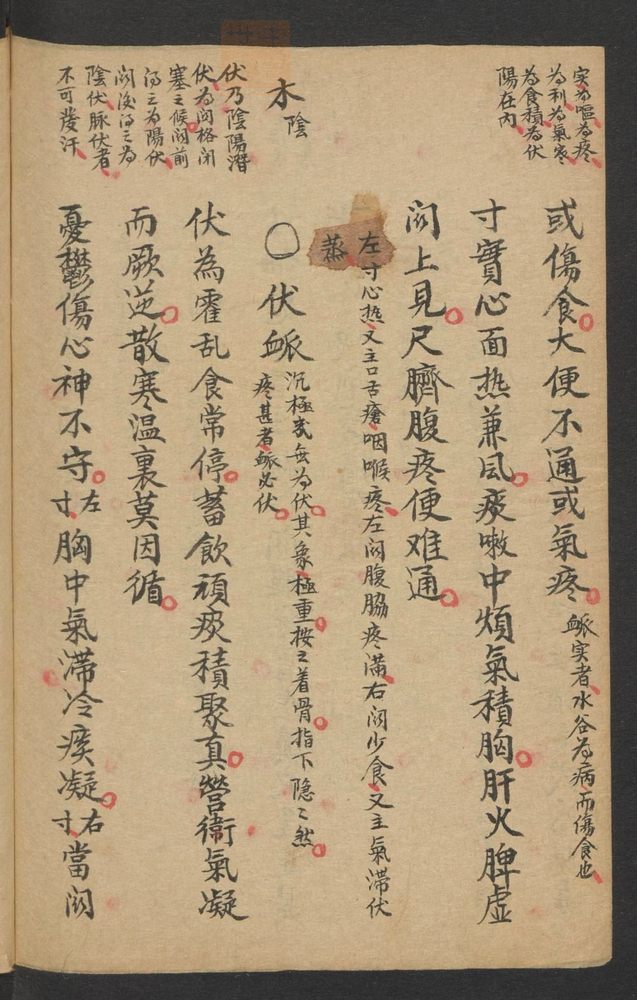 实为嘔为疼
为利为氣寒
为食積为伏
陽在内
或傷食大便不通或氣疼 䘑实者水谷为病而傷食也
寸實心面热兼风痰嗽中煩氣積胸肝火脾虚
関上見尺臍腹疼便难通
左寸心热又主口舌瘡咽喉疼左関腹脇疼满右関少食又主氣滞伏
蒸
木陰
〇伏䘑
沉極或無为伏其象極重按之着骨指下隐〻然
疼甚者䘑必伏
伏乃陰陽潜
伏为関格闭
塞之候関前
得之为陽伏
関後得之为
陰伏脉伏者
不可發汗
伏為霍乱食常停蓄飲頑痰積聚真營衞氣凝
而厥逆散寒温裏莫因循
憂鬱傷心神不守左寸胸中氣滞冷痰凝右寸當関